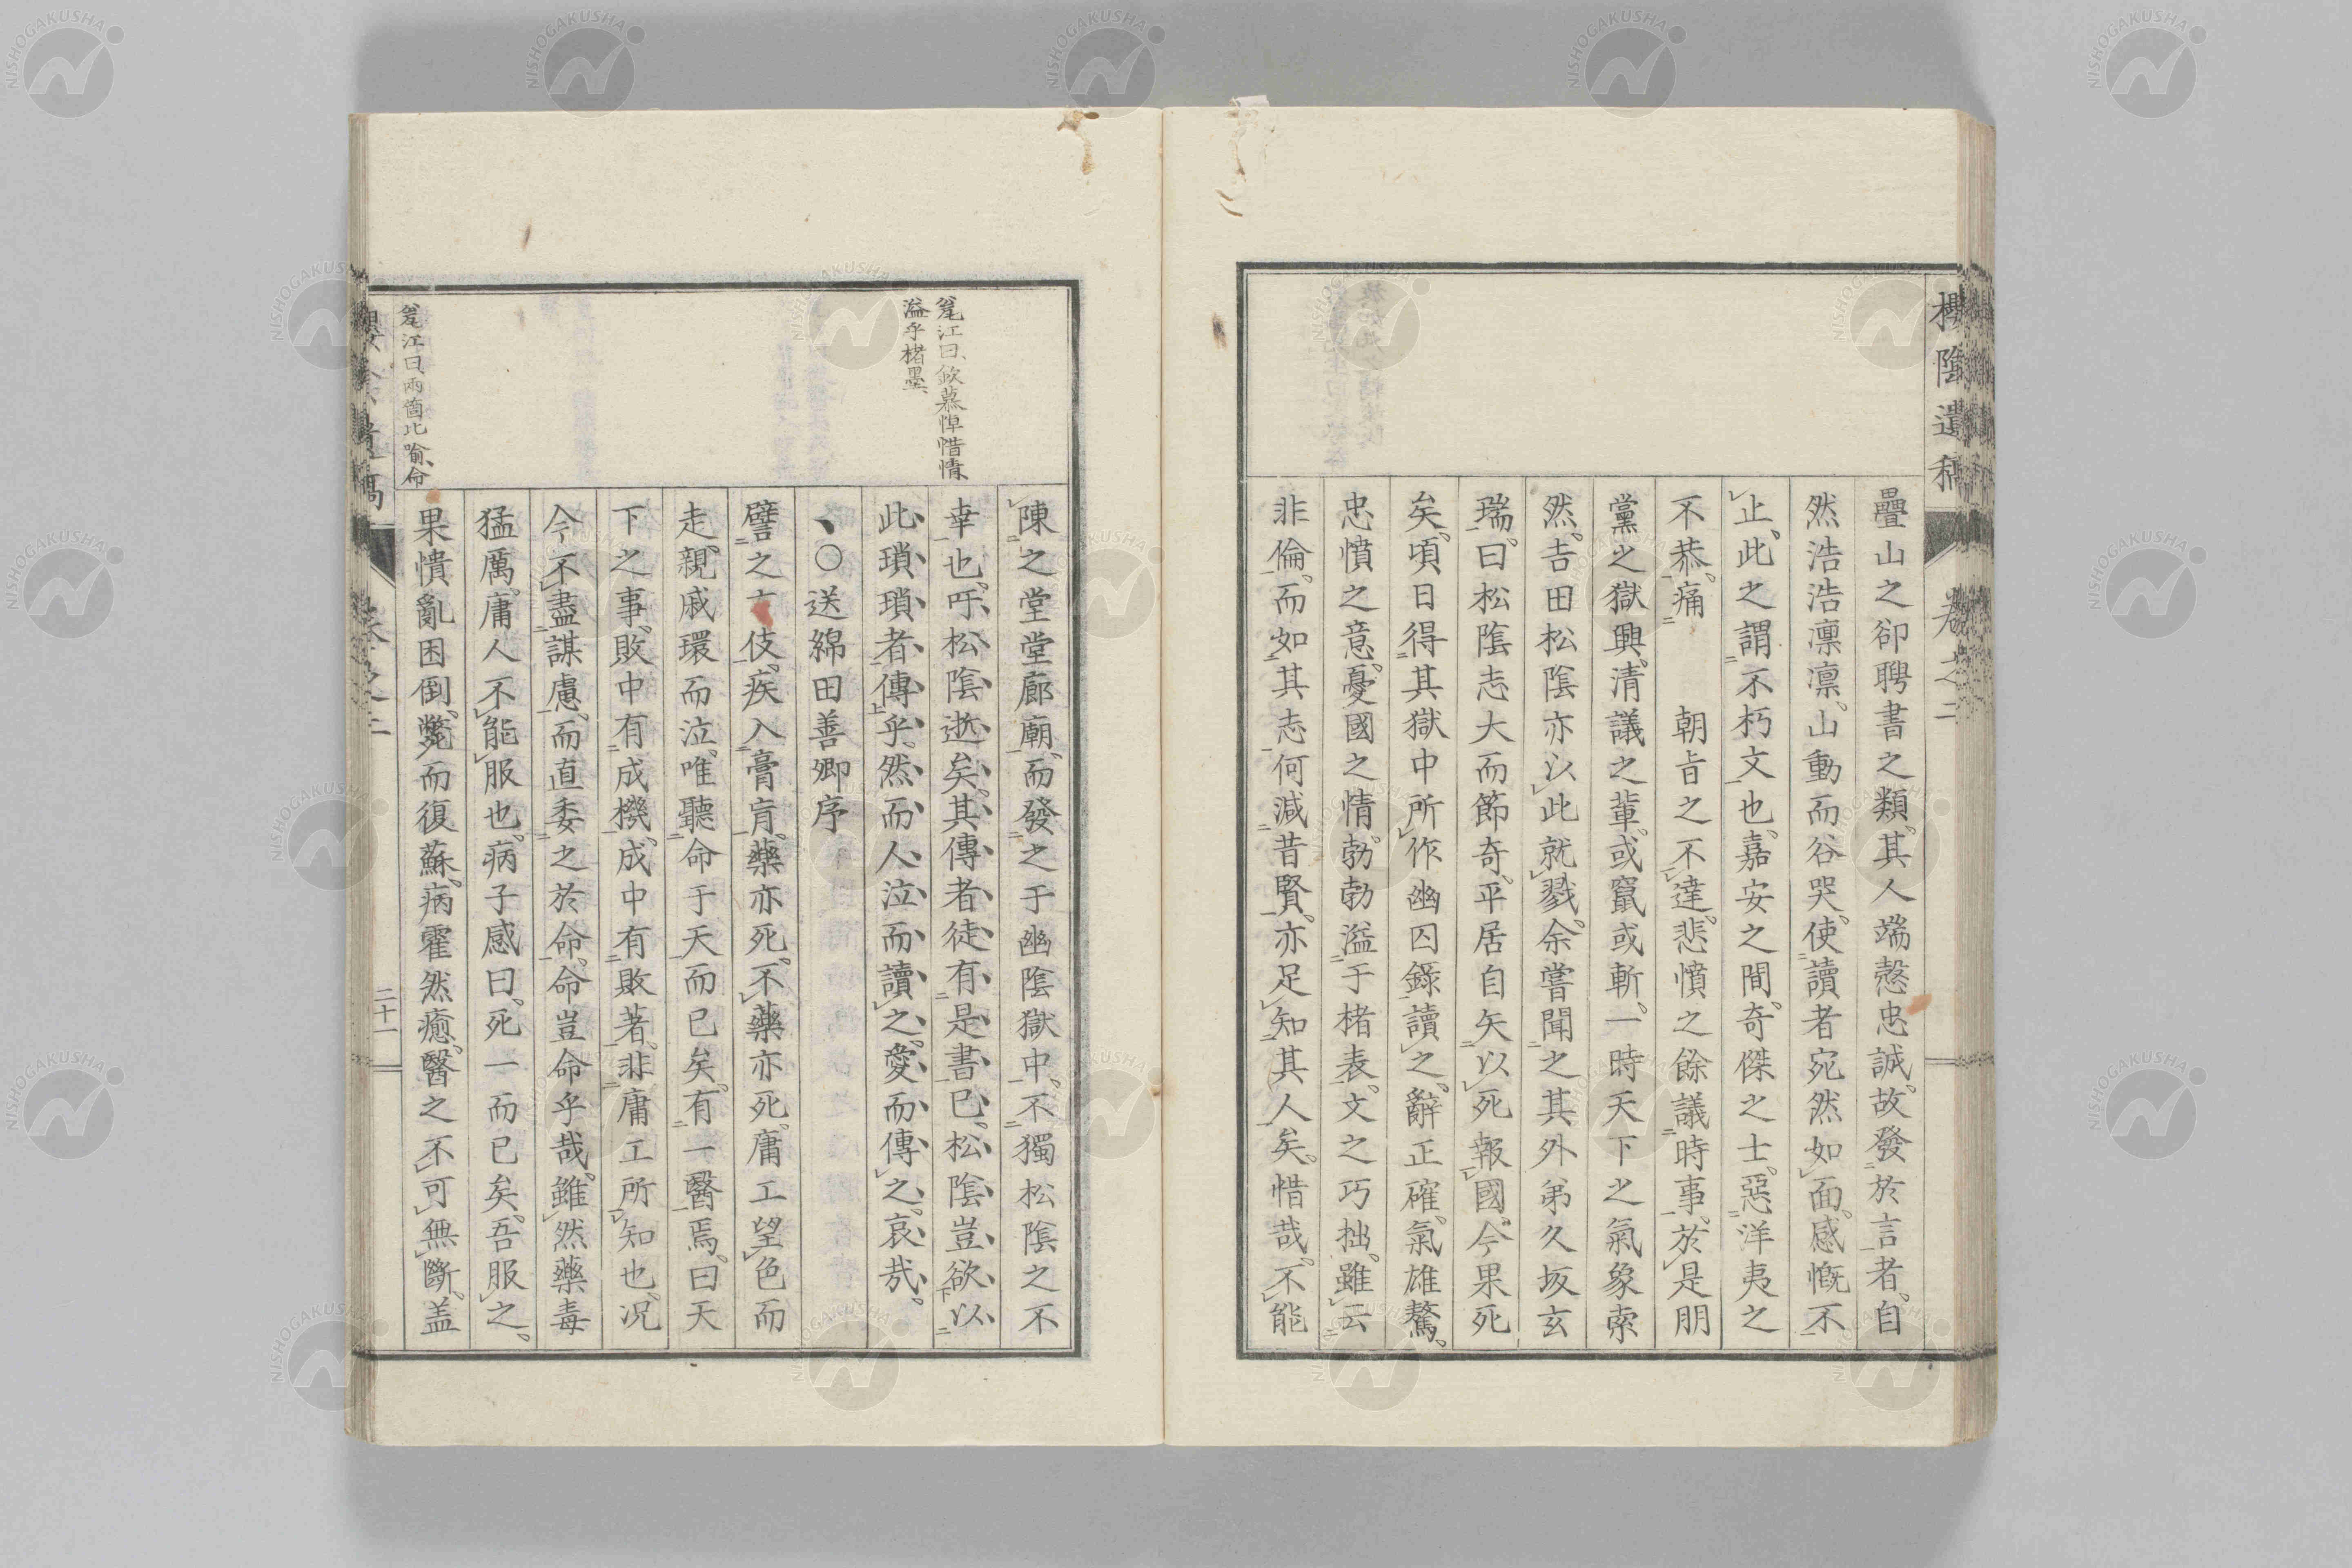 櫻陰遺稿
卷之二
疊山之卻聘書之類。其人端愨忠誠。故發於言者。自
然浩浩凛凛。山動而谷哭。使讀者宛然如面。感慨不
止。此之謂不朽文也。嘉安之間。奇傑之士。惡洋夷之
不恭。痛 朝旨之不達。悲憤之餘議時事。於是朋
黨之獄興。清議之輩。或竄或斬。一時天下之氣象索
然。吉田松陰亦以此就戮。余嘗聞之其外弟久坂玄
瑞。曰松陰志大而節奇。平居自矢以死報國。今果死
矣。頃日得其獄中所作幽囚錄讀之。辭正確。氣雄驁。
忠憤之意。憂國之情。勃勃溢于楮表。文之巧拙。雖云
非倫。而如其志何減昔賢。亦足知其人矣。惜哉。不能
筦江曰、欽慕悼惜情、
溢乎楮墨、
陳之堂堂廊廟。而發之于幽陰獄中。不獨松陰之不
幸也。吁松陰逝矣。其傳者徒有是書已。松陰豈欲以
此瑣瑣者傳乎。然而人泣而讀之。愛而傳之。哀哉。
○送綿田善卿序
譬之 伎。疾入膏肓。藥亦死。不藥亦死。庸工望色而
走。親戚環而泣。唯聽命于天而已矣。有一醫焉。曰天
下之事。敗中有成機。成中有敗著。非庸工所知也。况
今不盡謀慮。而直委之於命。命豈命乎哉。雖然藥毒
猛厲。庸人不能服也。病子感曰。死一而已矣。吾服之。
果憒亂困倒。斃而復蘇。病霍然癒。醫之不可無斷。盖
筦江曰、兩箇比喻、命
二十一
NISHOGAKUSHA